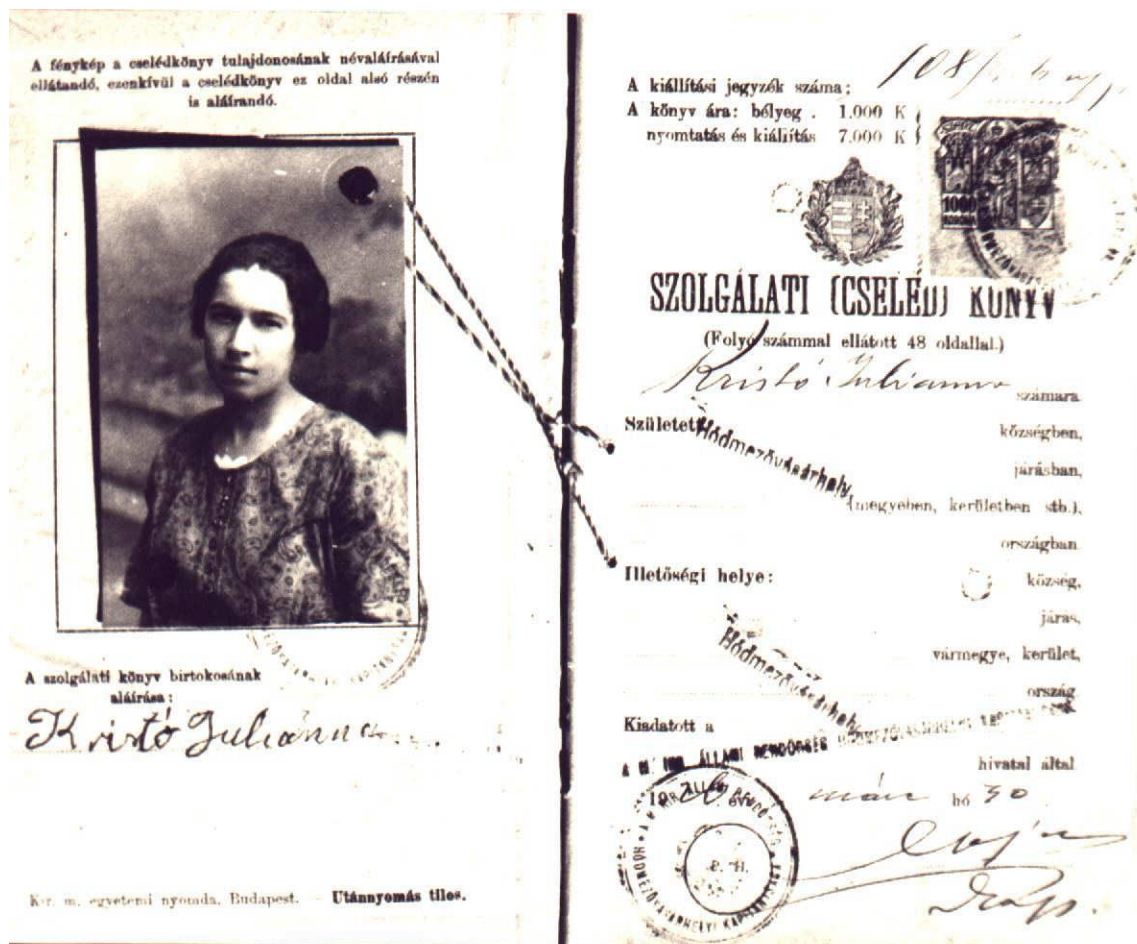 A fénykép a cselédkönyv tulajdonosának névaláírásával
ellátandó, ezenkívül a cselédkönyv ez oldal alsó részén
is aláírandó.
A szolgálati könyv birtokosának
aláírása:
Kristó Juliánna
Kir. m. egyetemi nyomda, Budapest. — Utánnyomás tilos.
A kiállítási jegyzék száma: 108/
A könyv ára: bélyeg . 1.000 K
nyomtatás és kiállítás 7.000 K
1000
SZOLGÁLATI (CSELÉD) KÖNYV
(Folyó számmal ellátott 48 oldallal.)
Kristó Julianna
számára
Született
Hódmezővásárhely
községben,
járásban,
(megyében, kerületben stb.),
országban
Illetőségi helye:
község,
járas,
Hódmezővásárhely
vármegye, kerület,
ország
Kiadatott a
A M. KIR. ÁLLAMI RENDŐRSÉG HÓDMEZŐVÁSÁRHELYI KAPITÁNYSÁGA
hivatal által
19 26 évi márc hó 30
A M. KIR. ÁLLAMI RENDŐRSÉG HÓDMEZŐVÁSÁRHELYI KAPITÁNYSÁGA